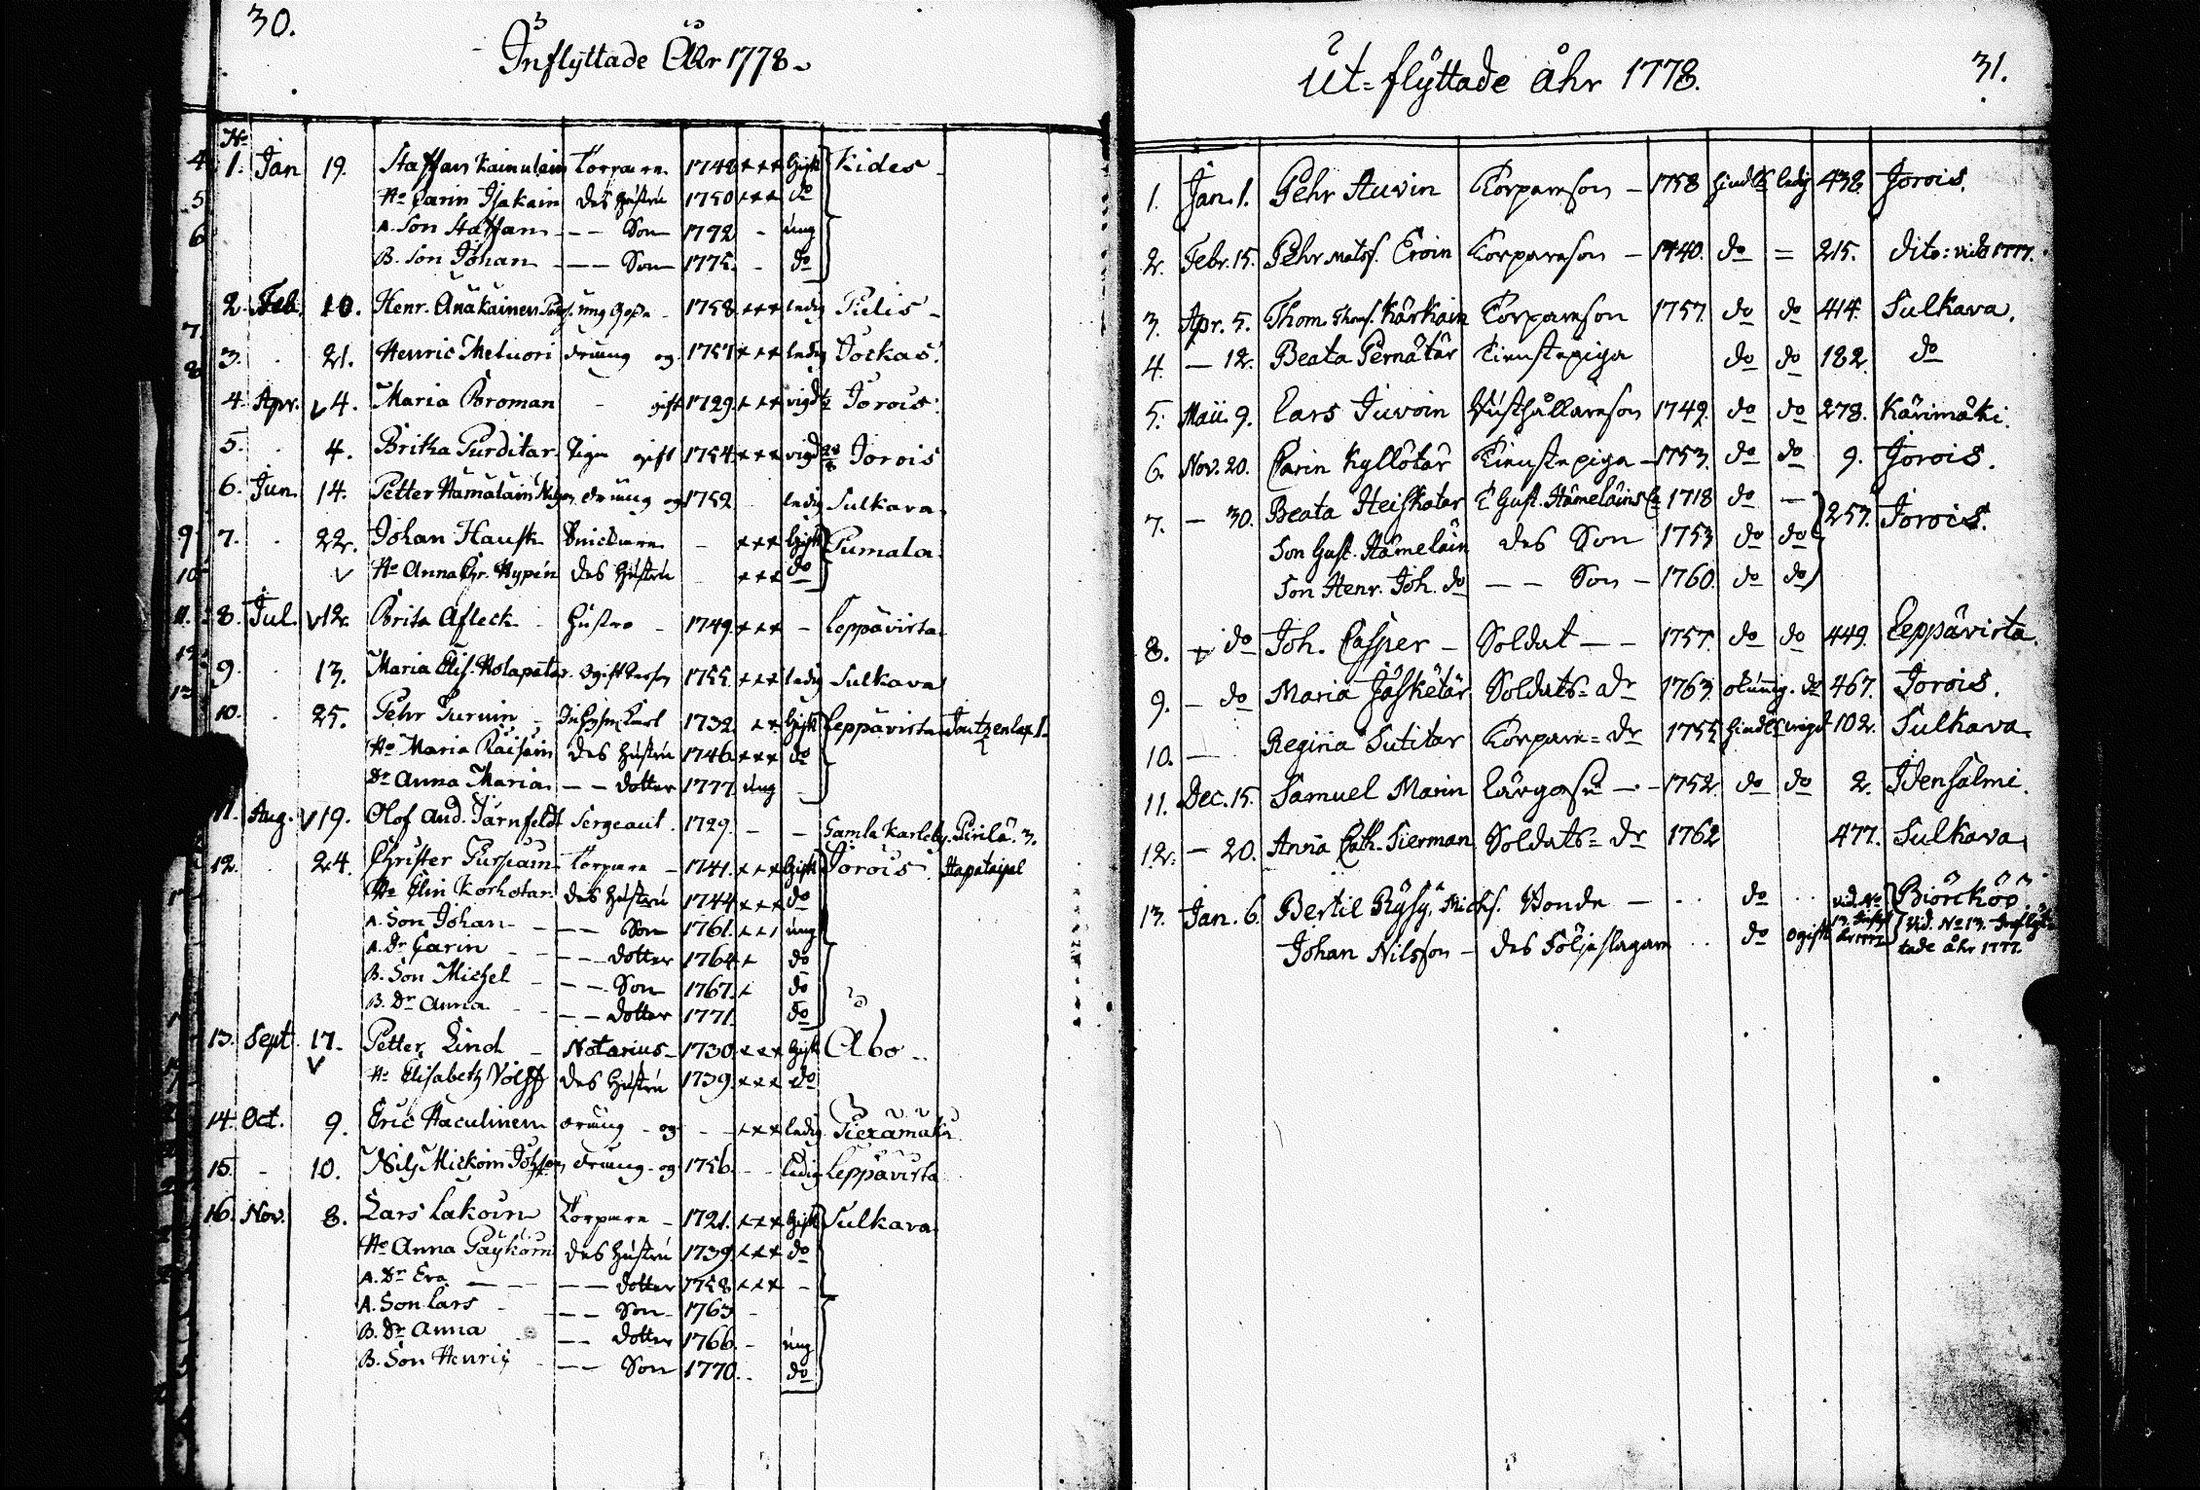 30.
Inflyttade Åhr 1778.
No
1. Jan 19. Staffan Kainulain Torpare 1748 xxx Gift Kides
Ho Carin Isakain des Hustru 1750 xxx do
A. Son Staffan - - Son 1772 - ung
B. Son Johan - - Son 1775. - do
2. Feb. 10. Henr. Anakainen ung 1758 xxx ledig Pielis
3. 21. Henric Meluori dräng og 1751 xxx ledig Jockas.
4. Apr. v 4. Maria Broman - gift 1729. xxx vigd Jorois.
5. 4. Britha Purditar Piga gift 1754. xxx vigd Jorois
6. Jun. 14. Petter Hämäläin dräng og 1752 ledig Sulkava
7. 22. Johan Hausk Snickare - xxx Gift Pumala.
v Ho Anna Chr. Hypén des Hustru xxx do
8. Jul. v 12. Brita Afleck Hustro - 1749. xxx - Leppävirta
9. 13. Maria Elis. Holapatar ogift 1755. xxx ledig Sulkava
10. 25. Pehr Purvin 1732. xx Gift Leppävirta
Ho Maria Räisäin des Hustru 1746. xxx do
Dr Anna Maria - - dotter 1777. ung
11. Aug. v 19. Olof And. Järnfeldt Sergeant. 1729. - - Gamla Karleby. Pirilä. 3.
12. 24. Christer Purpain Torpare - 1741. xxx Gift Jorois. Hapataipal
Ho Elin Korhotar des Hustru 1744 xxx do
A. Son Johan - - - Son 1761. ung
A. Dr Carin - - - dotter 1764 x do
B. Son Michel - - Son 1767. x do
B. Dr Anna - - dotter 1771. do
13. Sept. 17. Petter Lind Notarius 1730 xxx Gift Åbo
v Ho Elisabeth Wolff des Hustru 1739. xxx do
14. Oct. 9. Eric Haculinen dräng - og - xxx ledig Piexämäki
15. - 10. Nils Mickoin dräng - og 1756. - - ledig Leppävirta
16. Nov. 8. Lars Lakoin Torpare - 1721. xxx Gift Sulkava
Ho Anna Päyköin des Hustru 1739. xxx do
A. Dr Eva - - dotter 1758 xxx -
A. Son Lars - - Son 1763 -
B. Dr Anna - - dotter 1766. - ung
B. Son Henric - - Son 1770. do
Ut-flyttade åhr 1778.
31.
1. Jan. 1. Pehr Auvin Torpareson - 1758 ledig 438. Jorois.
2. Febr. 15. Pehr Matss. Eroin Torpareson - 1740. do = 215. dito: vide 1777.
3. Apr. 5. Thom. Thoms. Kärkäin Torpareson 1757. do do 414. Sulkava.
4. - 12. Beata Pernätär Tienstepiga do do 182. do
5. Maii. 9. Lars Juvoin Rusthållareson 1749. do do 278. Kärimäki.
6. Nov. 20. Carin Kyllötär Tienstepiga - 1753. do do 9. Jorois.
7. - 30. Beata Heiskatar E Gust. Hämeläins 1718 do - 257. Jorois.
Son Gust. Hämeläin des Son 1753 do do
Son Henr. Joh. do - - Son - 1760. do do
8. do Joh. Casper - Soldat - - 1757. do do 449. Leppävirta.
9. - do Maria Jäskätär Soldats = dr 1763. okunnig. do 467. Jorois.
10. - Regina Sutitar Torpare = dr 1755 102. Sulkava.
11. Dec. 15. Samuel Marin - 1752. do do 2. Idensalmi.
12. - 20. Anna Cath. Sierman Soldats = Dr 1762 477. Sulkava.
13. Jan. 6. Bertil Räsy, Michs. Bonde - - do vid. No Biörckö
Johan Nilsson - des Följeslagare do ogift Vid. No 13. Inflyt-
tade åhr 1777.